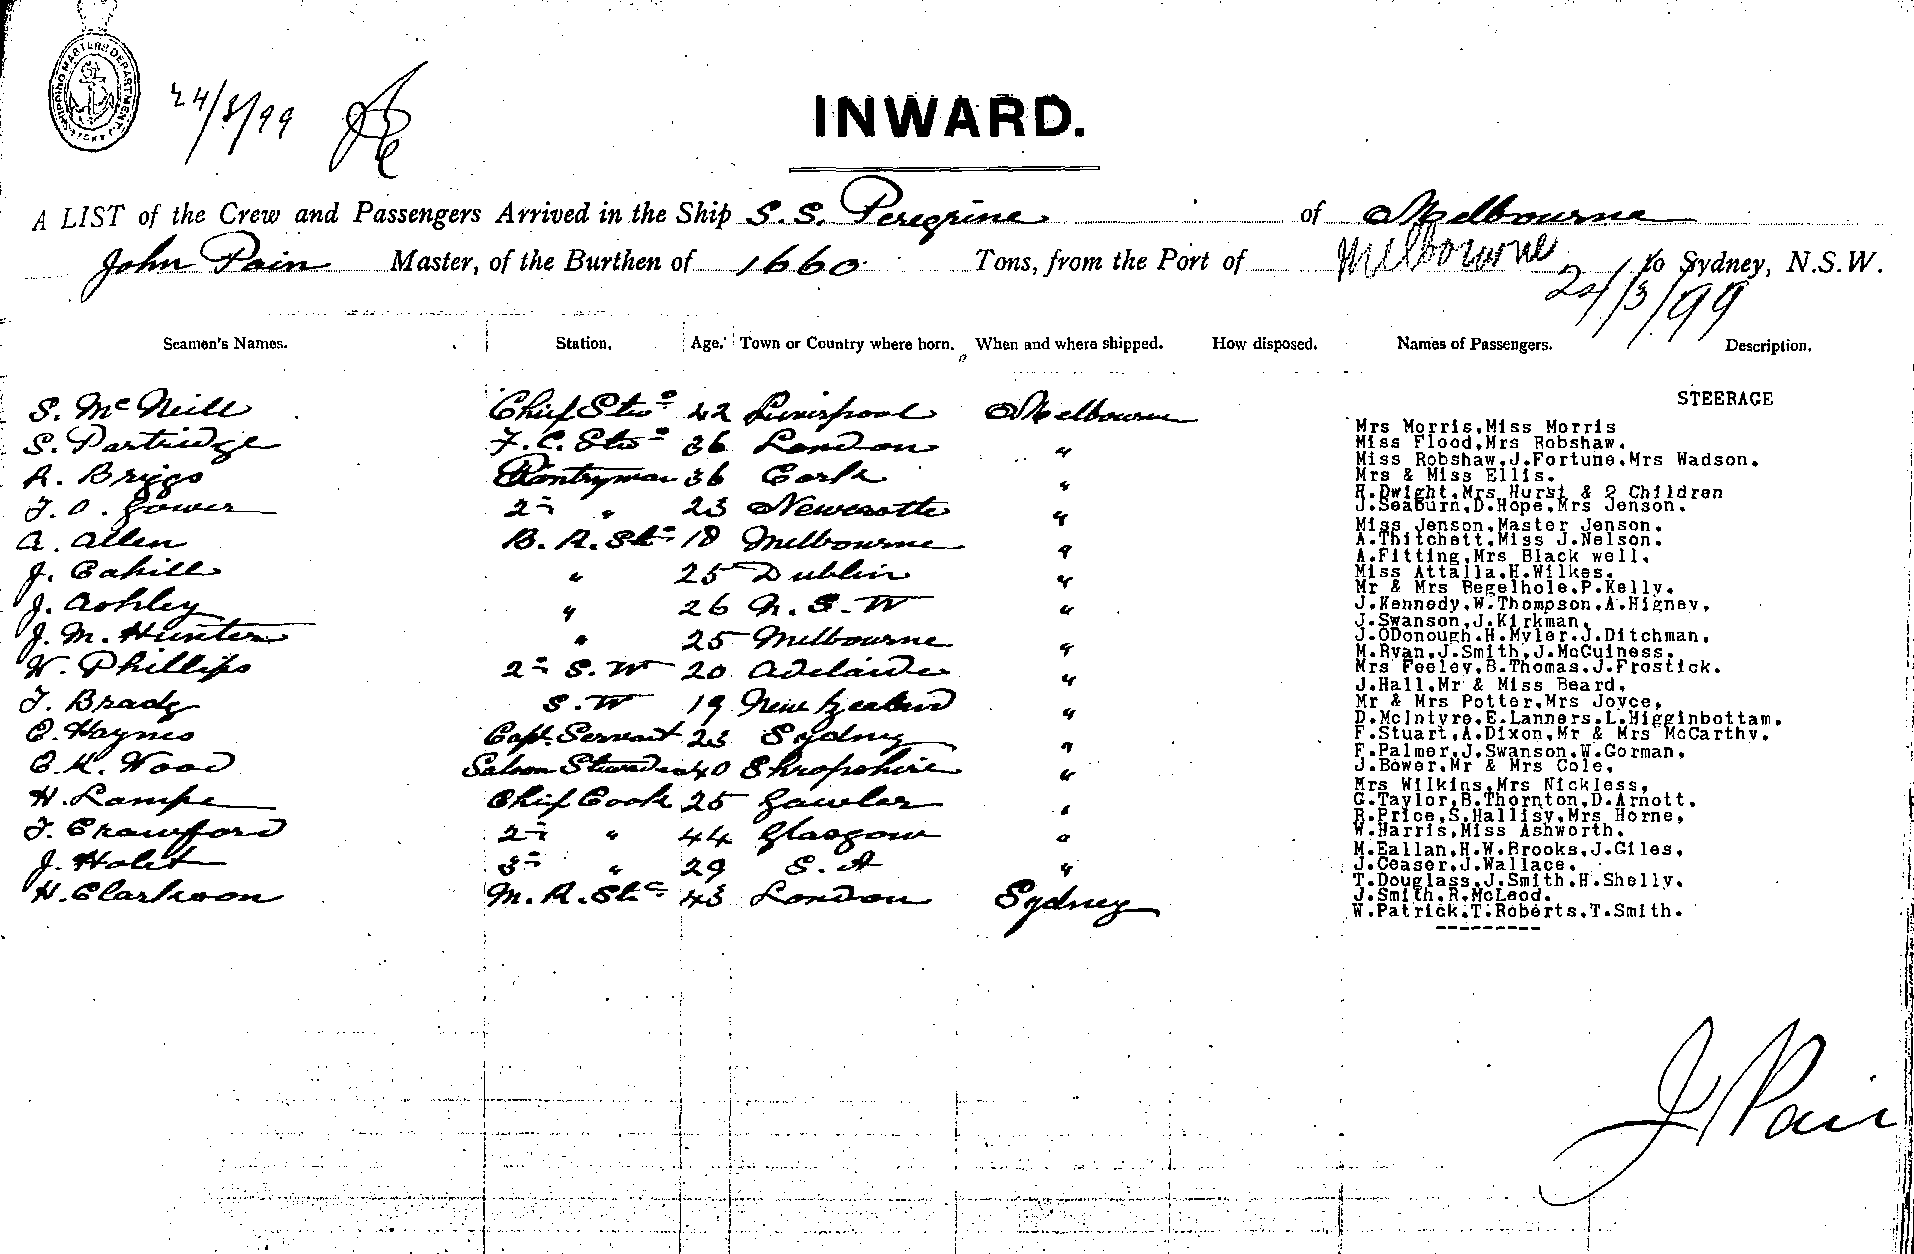 SHIPPING MASTERS DEPARTMENT
24/3/99
INWARD.
A LIST of the Crew and Passengers Arrived in the Ship S. S. Peregrine of Melbourne
John Pain Master, of the Burthen of 1660 Tons, from the Port of Melbourne to Sydney, N.S.W.
24/3/99
Seamen's Names. Station. Age. Town or Country where born. When and where shipped. How disposed. Names of Passengers. Description.
S. McNeill Chief Std 42 Liverpool Melbourne
S. Partridge F. C. Std 36 London "
A. Briggs Pantryman 36 Cork "
F. O. Gower 2nd " 23 Newcastle "
A. Allen B. R. Std 18 Melbourne "
J. Cahill " 25 Dublin "
J. Ashley " 26 N. S. W "
J. M. Hunter " 25 Melbourne "
W. Phillips 2nd S. W 20 Adelaide "
F. Brady S. W 19 New Zealand "
C. Haynes Capt. Servant 23 Sydney "
C. K. Wood Saloon Stewardess 40 Shropshire "
H. Lampe Chief Cook 25 Gawler "
F. Crawford 2nd " 44 Glasgow "
J. Holst 3rd " 29 S. A "
H. Clarkson M. R. Std 43 London Sydney
STEERAGE
Mrs Morris,Miss Morris
Miss Flood,Mrs Robshaw.
Miss Robshaw.J.Fortune.Mrs Wadson.
Mrs & Miss Ellis.
R.Dwight.Mrs Hurst & 2 Children
J.Seaburn.D.Hope.Mrs Jenson.
Miss Jenson.Master Jenson.
A.Thitchett.Miss J.Nelson.
A.Fitting,Mrs Black well.
Miss Attalla.H.Wilkes.
Mr & Mrs Begelhole.P.Kelly.
J.Kennedy.W.Thompson.A.Higney.
J.Swanson,J.Kirkman.
J.ODonough.H.Myler.J.Ditchman.
M.Ryan.J.Smith,J.McCuiness.
Mrs Feeley.B.Thomas.J.Frostick.
J.Hall.Mr & Miss Beard.
Mr & Mrs Potter.Mrs Joyce.
D.McIntyre.E.Lanners.L.Higginbottam.
F.Stuart.A.Dixon.Mr & Mrs McCarthy.
F.Palmer.J.Swanson.W.Gorman.
J.Bower.Mr & Mrs Cole.
Mrs Wilkins.Mrs Nickless.
G.Taylor.B.Thornton.D.Arnott.
R.Price.S.Hallisy.Mrs Horne.
W.Harris,Miss Ashworth.
M.Eallan.H.W.Brooks.J.Giles.
J.Ceaser.J.Wallace.
T.Douglass.J.Smith.H.Shelly.
J.Smith.R.McLeod.
W.Patrick.T.Roberts.T.Smith.
J Pain